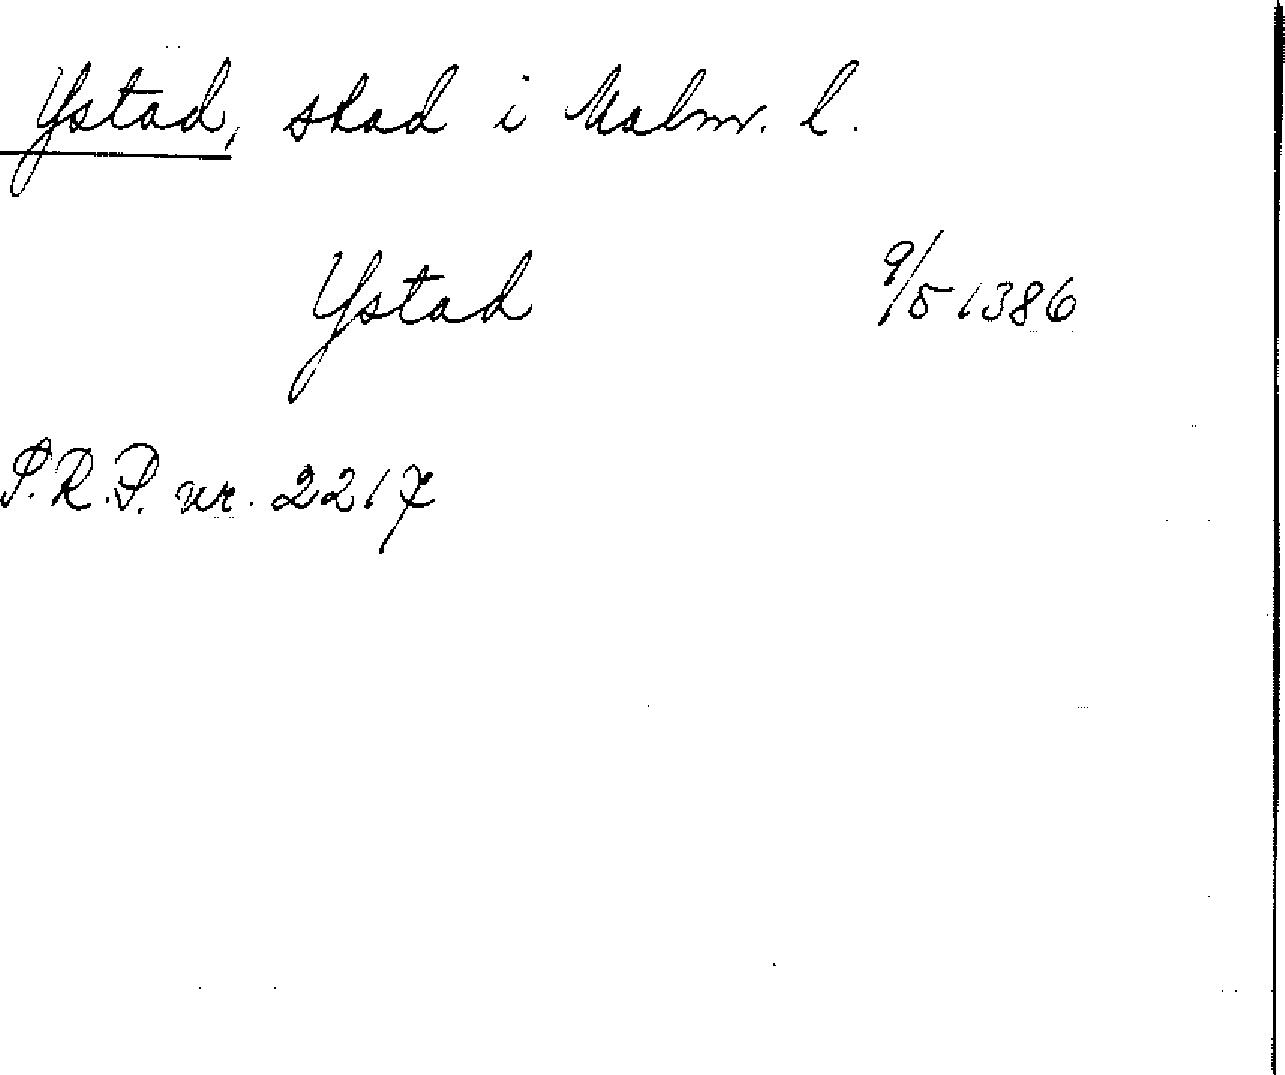 Ystad, stad i Malm. l.
Ystad 9/5 1386
S.R.P. nr. 2217